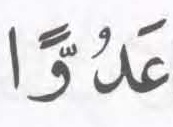 عَدُوًّا